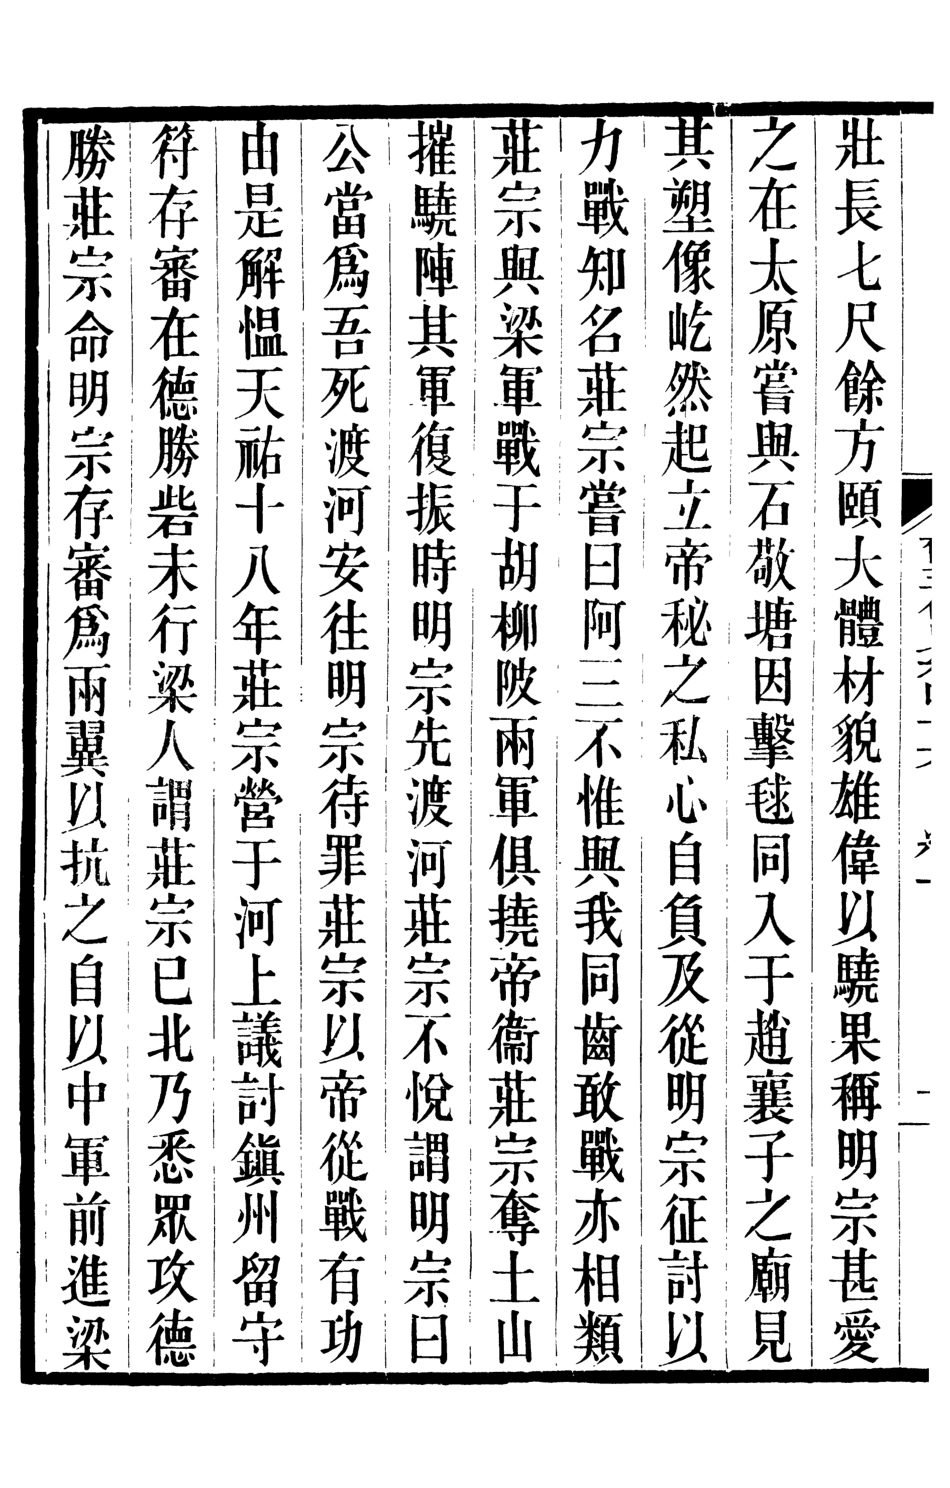 壯長七尺餘方頤大體材貌雄偉以驍果稱明宗甚愛
之在太原嘗與石敬塘因擊毬同入于趙襄子之廟見
其塑像屹然起立帝秘之私心自負及從明宗征討以
力戰知名莊宗嘗曰阿三不惟與我同齒敢戰亦相類
莊宗與梁軍戰于胡柳陂兩軍俱撓帝衞莊宗奪土山
摧驍陣其軍復振時明宗先渡河莊宗不悅謂明宗曰
公當爲吾死渡河安往明宗待罪莊宗以帝從戰有功
由是解慍天祐十八年莊宗營于河上議討鎭州留守
符存審在德勝砦未行梁人謂莊宗已北乃悉眾攻德
勝莊宗命明宗存審爲兩翼以抗之自以中軍前進梁